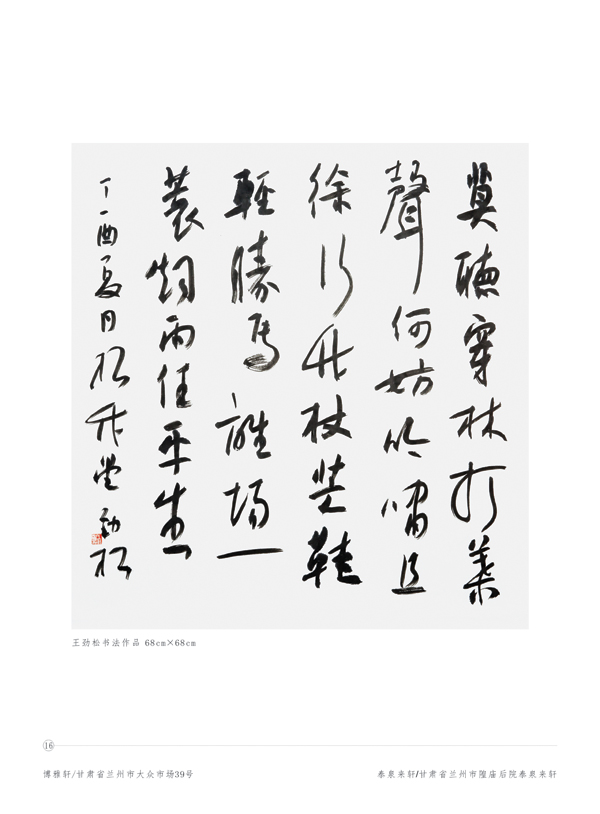 莫聽穿林打葉
聲何妨吟嘯且
徐行竹杖芒鞋
輕勝馬誰怕一
蓑烟雨任平生
丁酉夏月松竹堂勁松
王劲松书法作品 68cm×68cm
16
博雅轩/甘肃省兰州市大众市场39号
泰泉来轩/甘肃省兰州市隍庙后院泰泉来轩